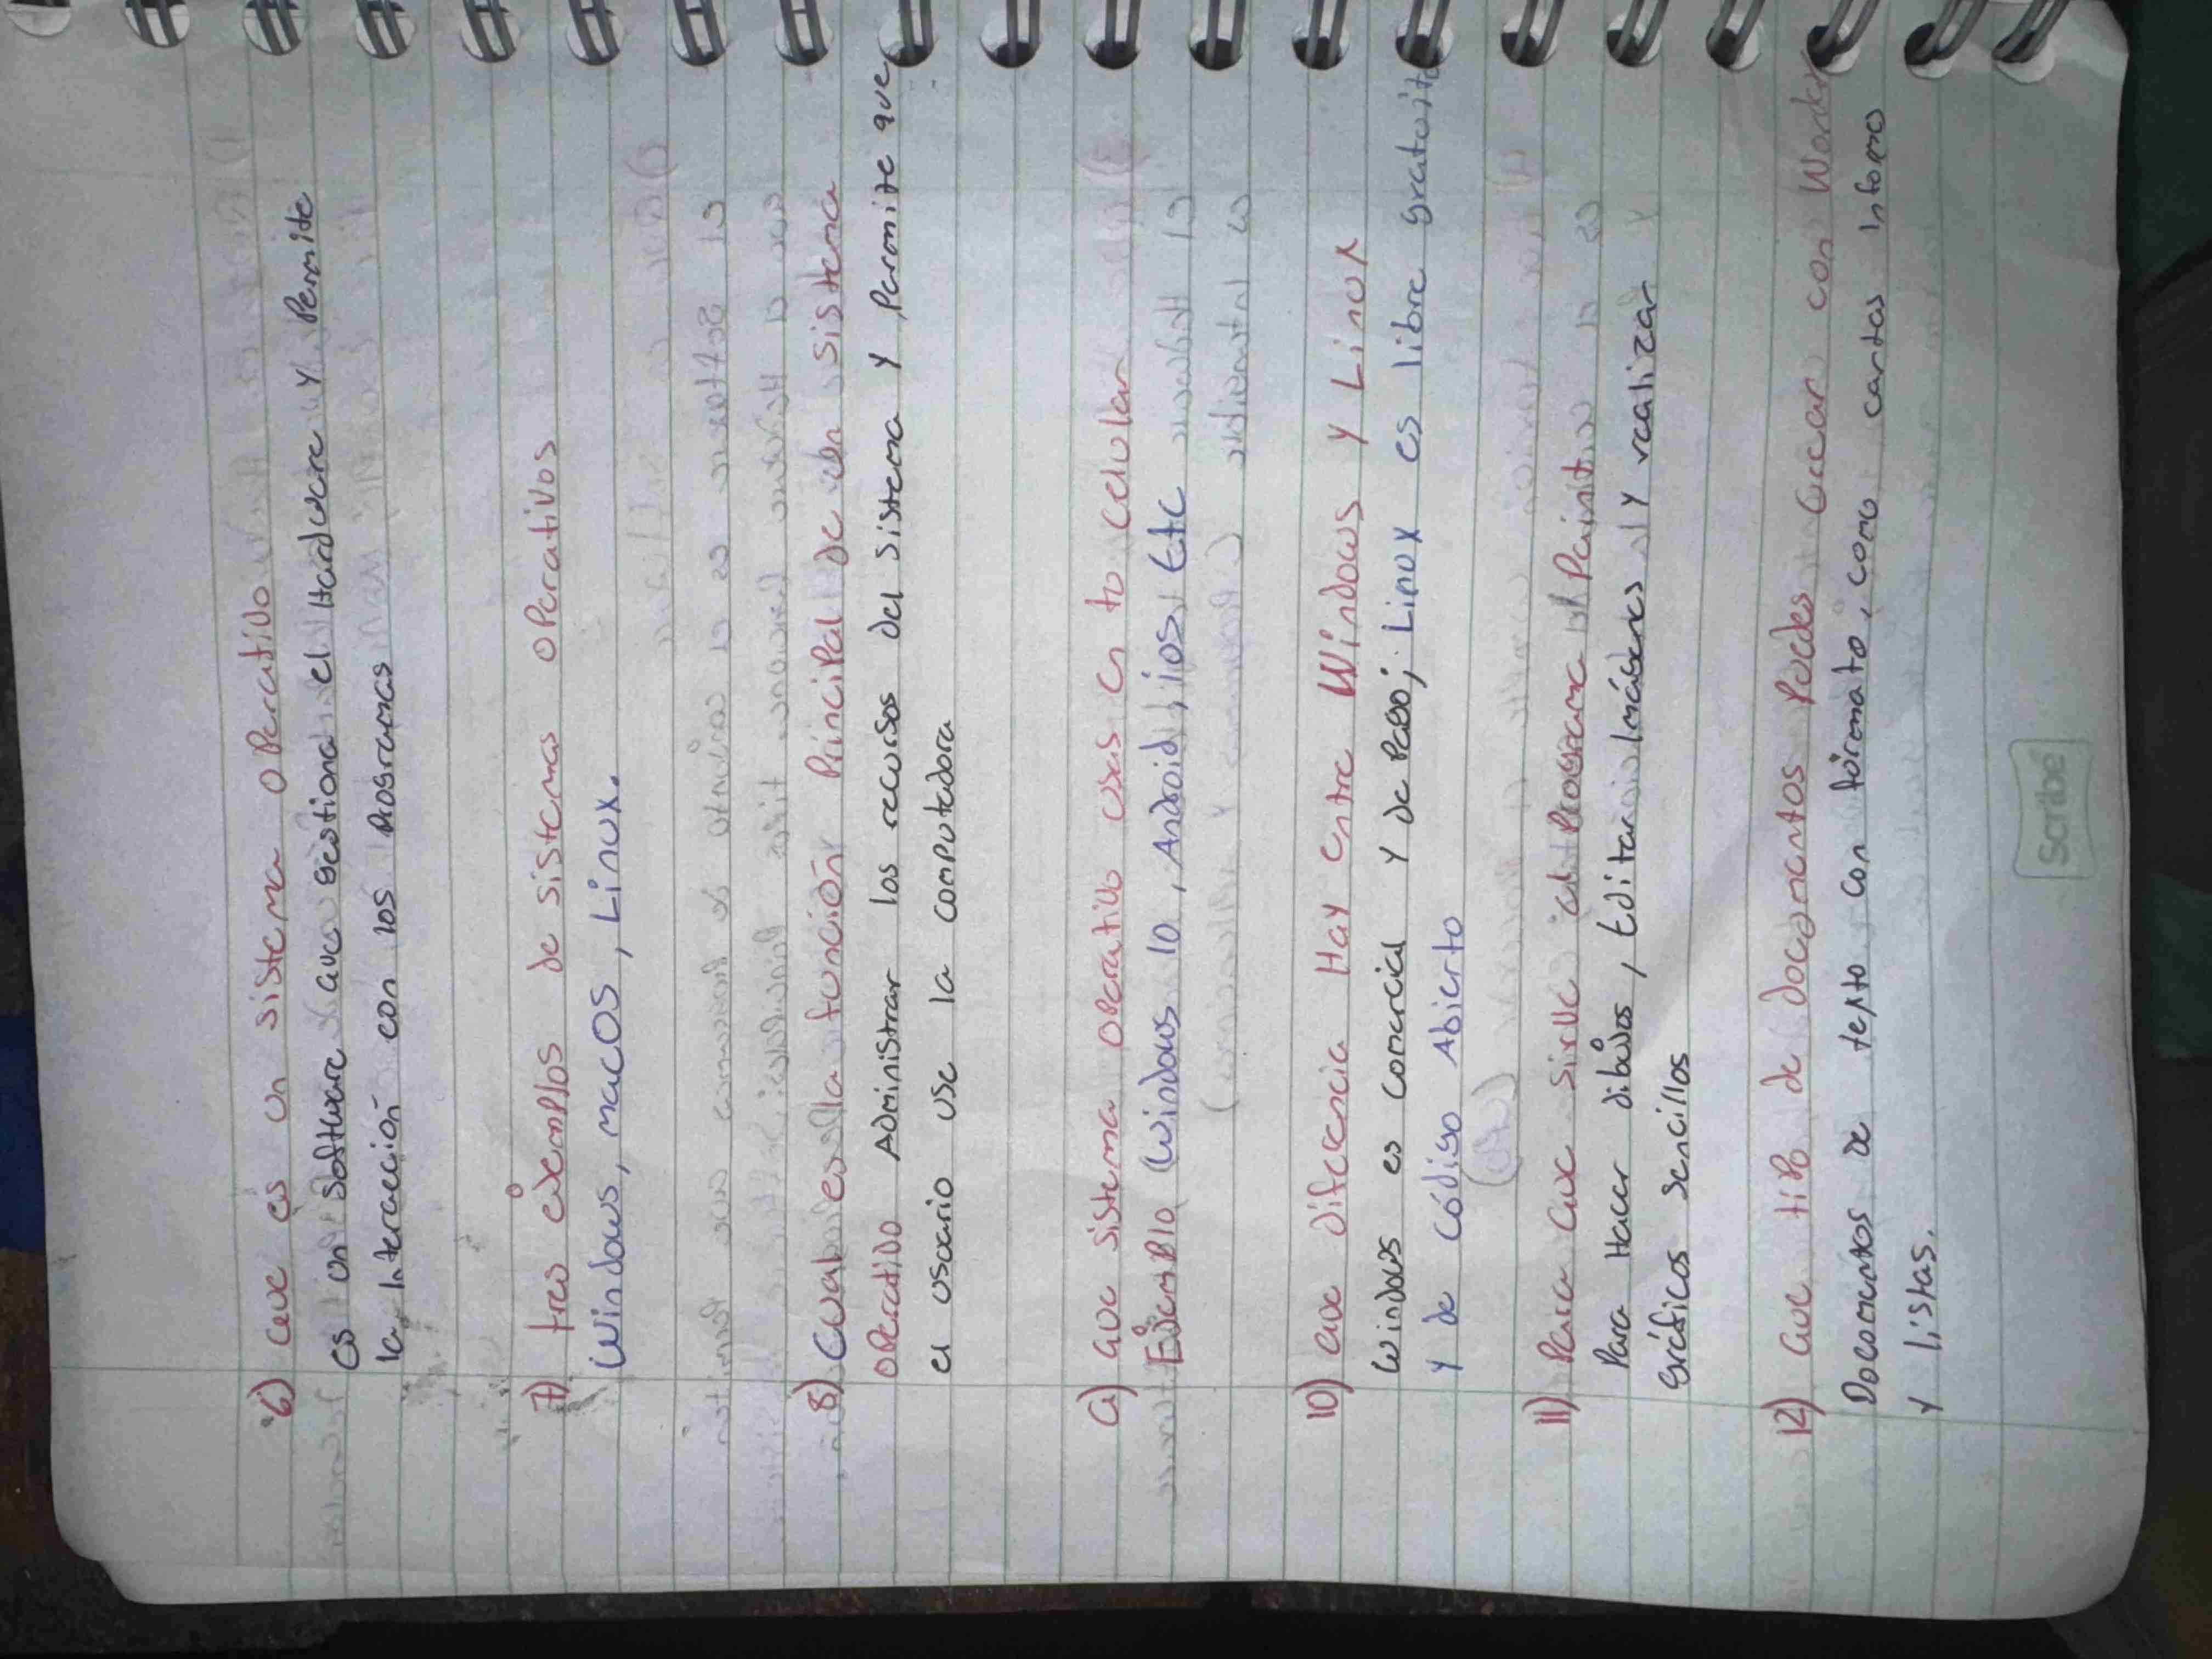 6) que es un sistema operativo
es un software que gestiona el Hardware y Permite
la interacción con los Programas
7) tres ejemplos de sistemas operativos
Windows, macOS, Linux.
8) Cual es la función Principal de un sistema
operativo Administrar los recursos del sistema y Permite que
el usuario use la computadora
9) que sistema operativo usas en tu celular
Ejemplo (Windows 10, Android, ios, Etc
10) que diferencia Hay entre Windows y Linux
Windows es comercial y de Pago; Linux es libre gratuito
y de código Abierto
11) Para que sirve el Programa Paint
Para Hacer dibujos, Editar imágenes y realizar
gráficos sencillos
12) que tipo de documentos Puedes crear con Word
Documentos de texto con fórmato, como cartas informes
y listas.
Scribe